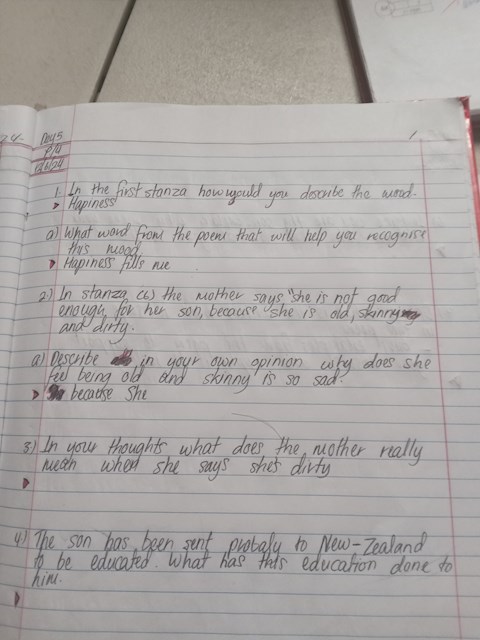 Day5
P/4
1. In the first stanza how would you describe the mood.
Hapiness
a) What word from the poem that will help you recognise
this mood
Happiness fills me
2.) In stanza (6) the mother says "she is not good
enough for her son, because "she is old, skinny
and dirty.
a) Describe in your own opinion why does she
feel being old and skinny is so sad.
because She
3.) In your thoughts what does the mother really
mean when she says she's dirty
4.) The son has been sent probaly to New-Zealand
to be educated. What has this education done to
him.